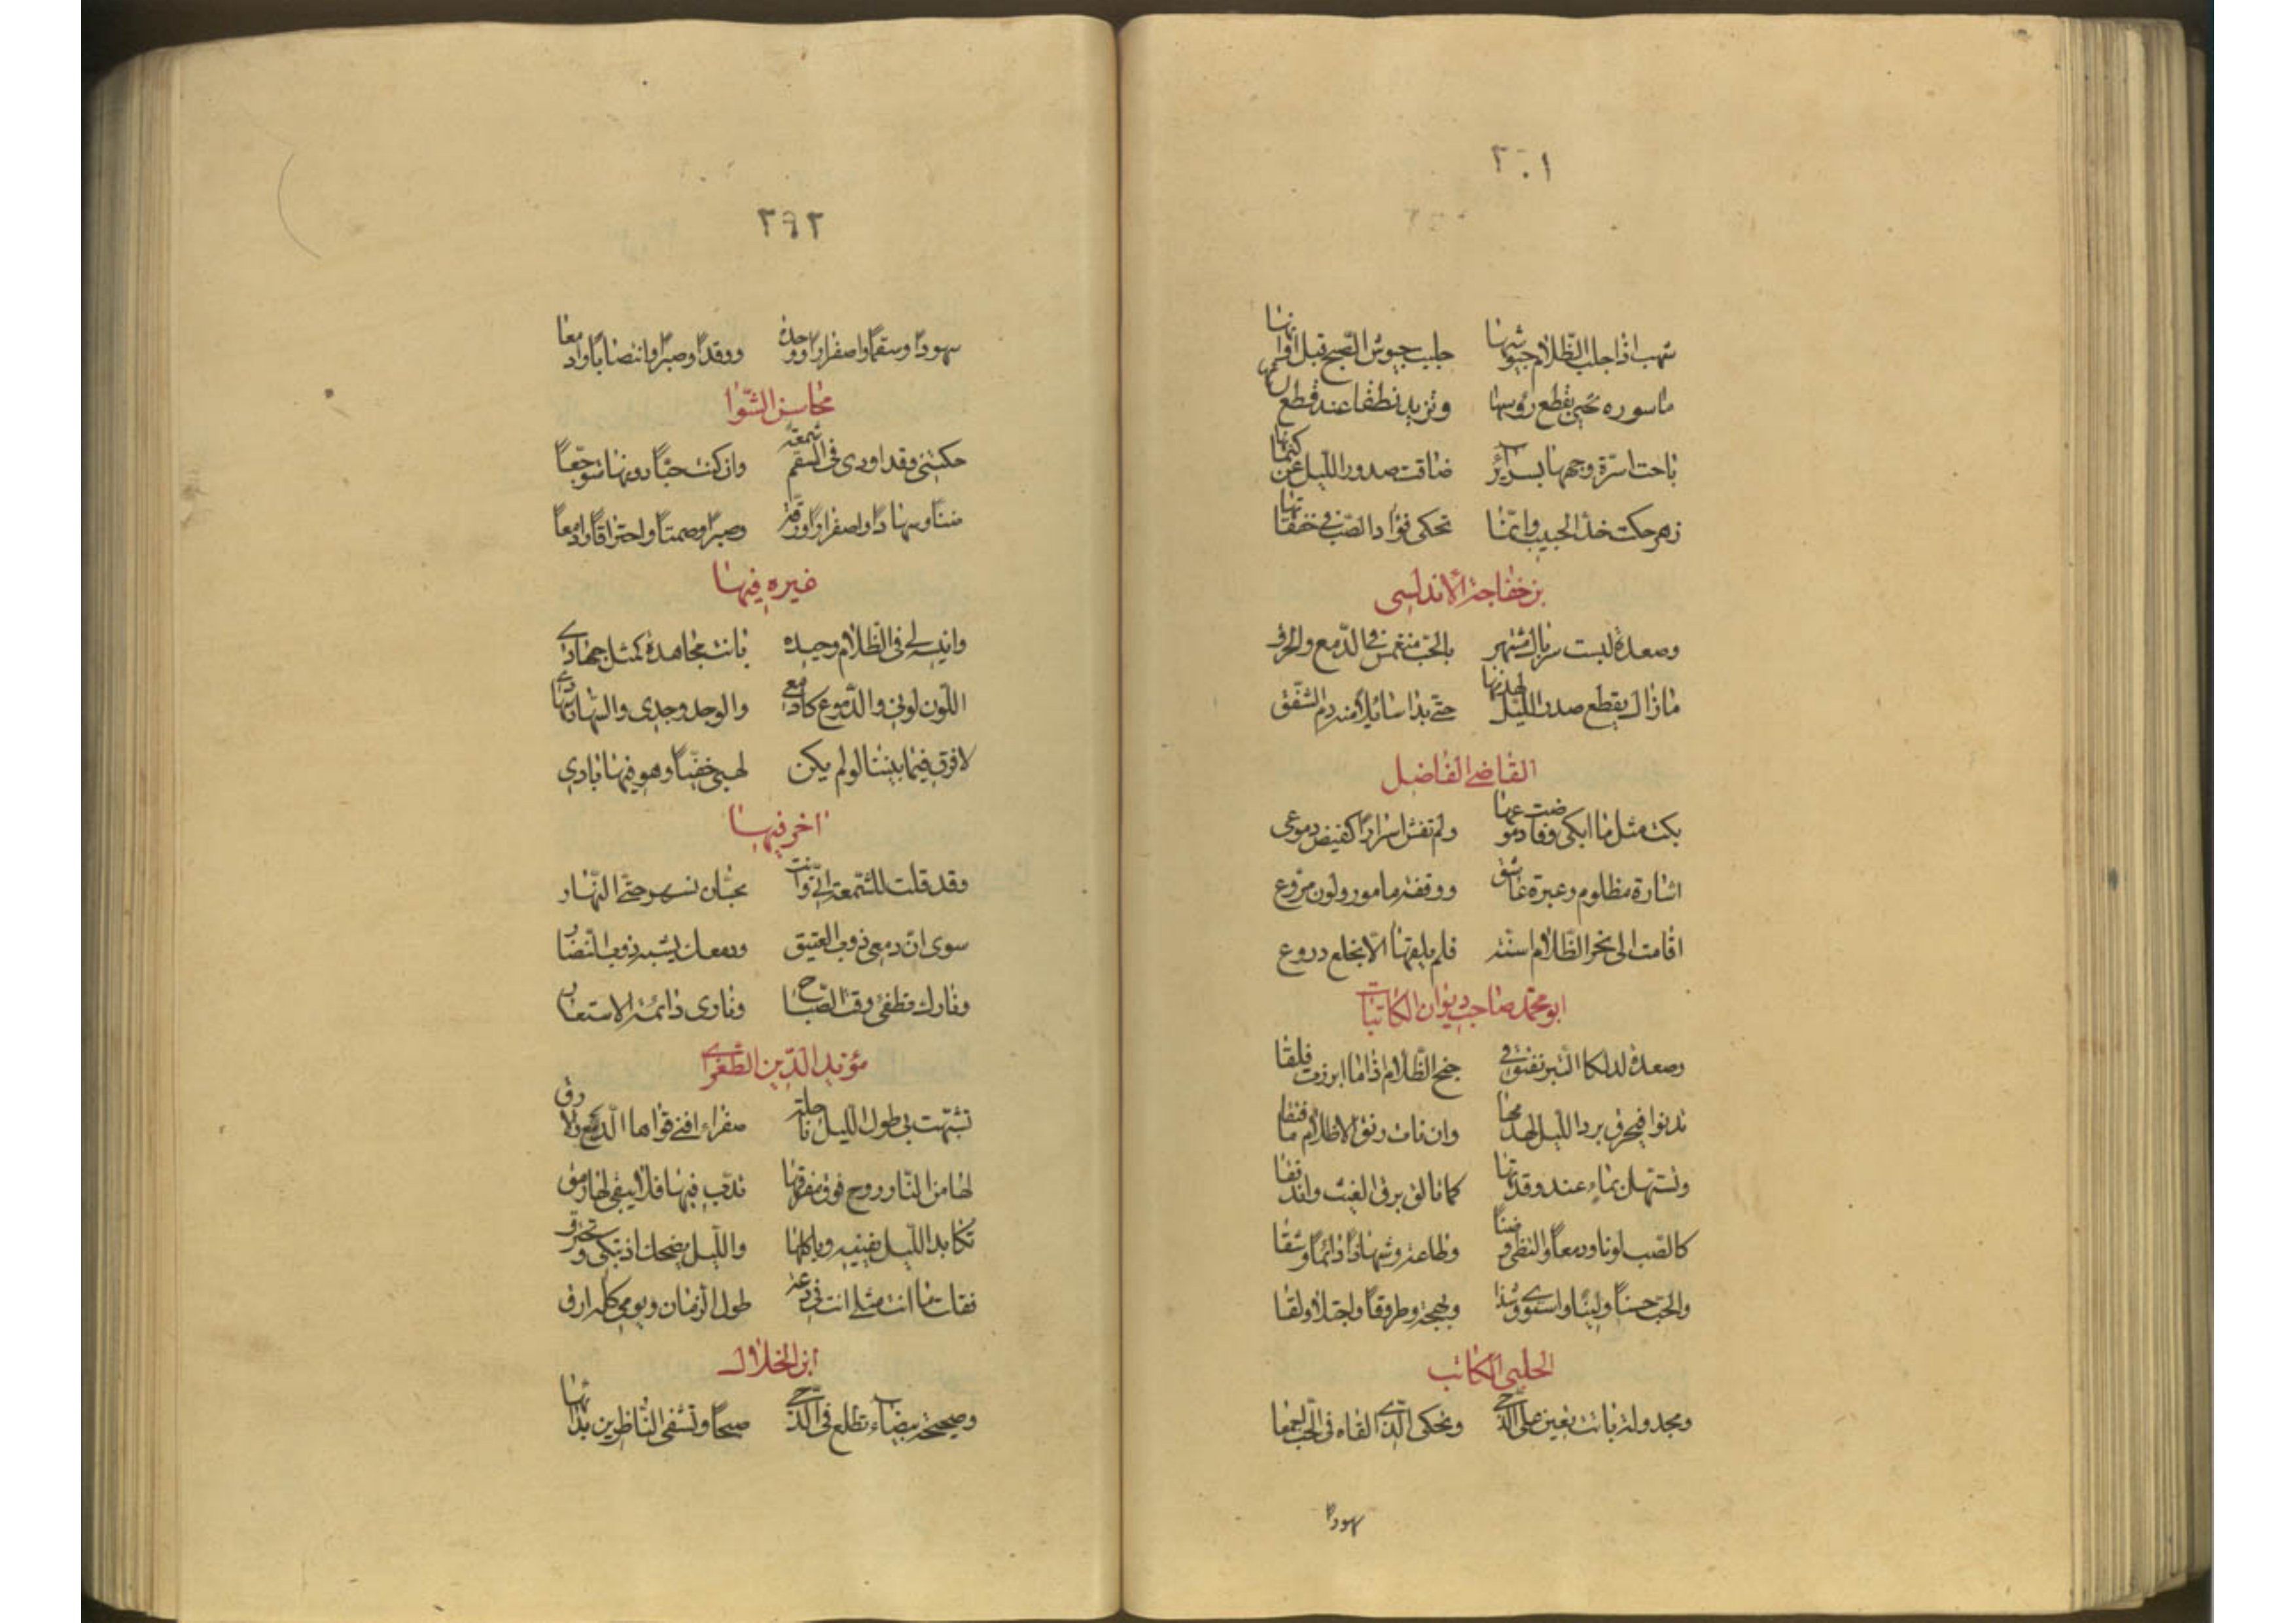 ٢٠١
شهب اذا جلب الظّلام جيوشها جلبت جيوش الصّبح قبل اوانها
ماسوره تحيى بقطع رؤسها وتزيد نطقا عند قطع لسانها
باحت اسرّة وجهها بسرائر ضاقت صدور اللّيل عن كتمانها
زهر حكت خدّ الحبيب وانّما تحكى فؤاد الصّبّ فى خفقانها
بن خفاجة الأندلسى
وصعدة لبست سربال مشتهر بالحبّ منغمس فى الدّمع والحرق
مازال يقطع صدر اللّيل لهذمها حتّى بدا سائلا منه دم الشّفق
القاضى الفاضل
بكت مثل ما ابكى وفاضت دموعها ولم تفش اسرارًا كفيض دموعى
اشارة مظلوم وعبرة عاشق ووقفة مامور ولون مروّع
اقامت الى نحر الظّلام اسنّة فلم يلقها الّا بخلع دروع
ابو محمّد صاحب ديوان الكاتبات
وصعدة لدنة كالتّبر تفتق فى جنح الظّلام اذا ما ابرزت فلقا
تدنوا فيحرق برد اللّيل لهذمها وان نات رتق الاظلام ما فتقا
وتستهلّ بماء عند وقدتها كما تالق برق الغيث واندفقا
كالصّب لونا ودمعًا والتظى وضنًا وطاعة وسهادًا دائمًا وشقا
والحبّ حسنًا ولينًا واستوى وشذا وبهجة وطروقًا واجتلا ولقا
الحلبى الكاتب
ومجدولة باتت بعين على الدّجى وتحكى الّذى القاه فى الحبّ اجمعا
سهودًا
٢٩٢
سهودًا وسقمًا واصفرارًا ووحدة ووقدًا وصبرًا وانتصابًا وادمعا
محاسن الشّوا
حكتنى وقد اورى فى السقم شمعة وان كنت حبًّا دونها متوجّعًا
ضنًا وسهادًا واصفرارًا ورقّة وصبرًا وصمتًا واحتراقًا وادمعًا
غيره فيها
وانيسة لى فى الظّلام وحيدة باتت مجاهدة كمثل جهادى
اللّون لونى والدّموع كادمعى والوجد وجدى والسّهاد سهادى
لا فرق فيما بيننا لو لم يكن لهبى خفيًّا وهو فيها بادى
اخر فيها
وقد قلت للشّمعة انّى وانت محبّان نسهر حتّى النّهار
سوى انّ دمعى ذوب العقيق ودمعك يشبه ذوب النّضار
ونارك تطفئ وقت الصّباح ونارى دائمة الاستعار
مؤيد الدّين الطّغرائى
تشبّهت بى طول اللّيل ناحلة صفراء افنى قواها الدّمع والارق
لها من النّار روح فوق مفرقها تدبّ فيها فلا يبقى لها رمق
تكابد اللّيل يفنيه وياكلها واللّيل يضحك اذ تبكى وتحترق
فقلت ما انت مثلى انت فى دعة طول الزمان ويومى كله ارق
ابن الخلال
وصحيحة بيضاء تطلع فى الدّجى صبحًا وتشفى النّاظرين بدائها